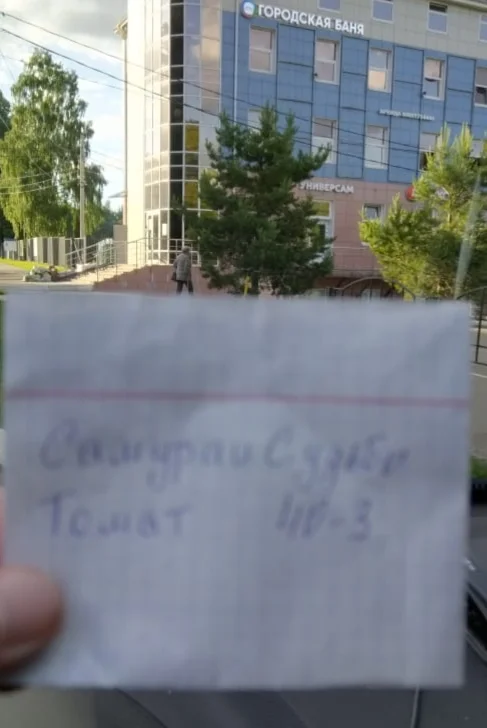 ГОРОДСКАЯ БАНЯ
УНИВЕРСАМ
Самураи Судьбы
Томат 40-3